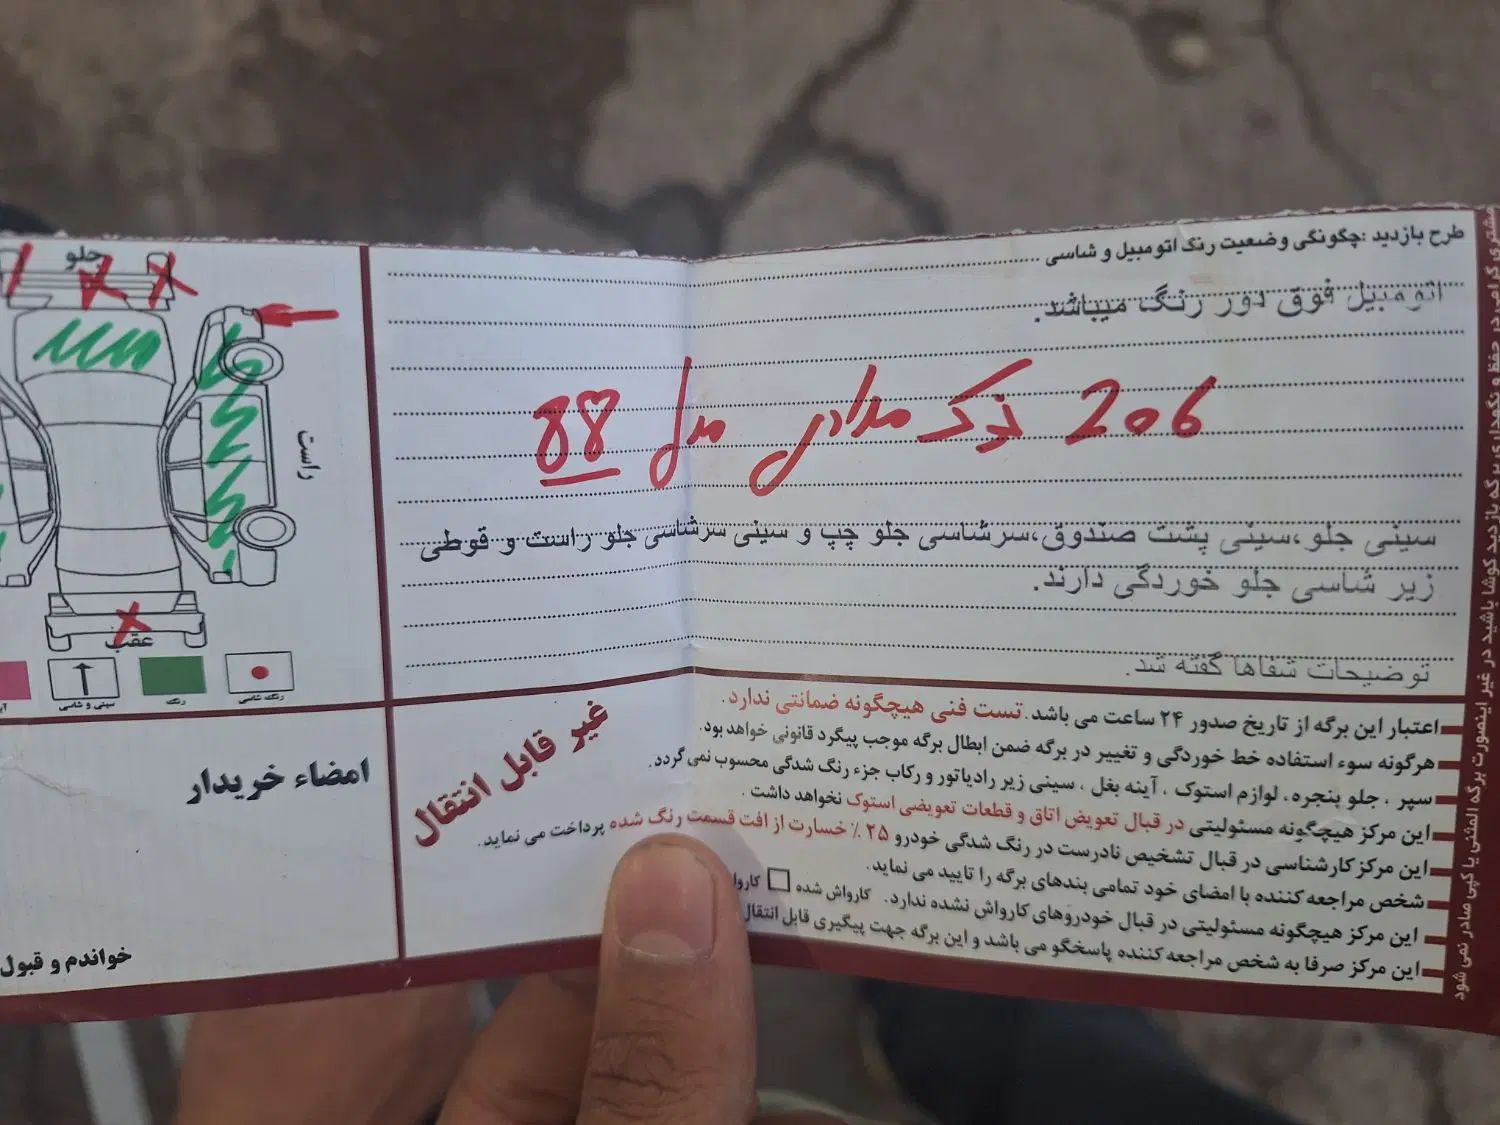 طرح بازدید :چگونگی وضعیت رنگ اتومبیل و شاسی
اتومبیل فوق دور رنگ میباشد.
206 نوک مدادی مدل 88
سینی جلو،سینی پشت صندوق،سرشاسی جلو چپ و سینی سرشاسی جلو راست و قوطی
زیر شاسی جلو خوردگی دارند.
توضیحات شفاها گفته شد.
جلو
راست
عقب
رنگ شاسی
رنگ
سینی و شاسی
اعتبار این برگه از تاریخ صدور ۲۴ ساعت می باشد. تست فنی هیچگونه ضمانتی ندارد.
هرگونه سوء استفاده خط خوردگی و تغییر در برگه ضمن ابطال برگه موجب پیگرد قانونی خواهد بود.
سپر ، جلو پنجره، لوازم استوک ، آینه بغل ، سینی زیر رادیاتور و رکاب جزء رنگ شدگی محسوب نمی گردد.
این مرکز هیچگونه مسئولیتی در قبال تعویض اتاق و قطعات تعویضی استوک نخواهد داشت .
این مرکز کارشناسی در قبال تشخیص نادرست در رنگ شدگی خودرو ۲۵ ٪ خسارت از افت قسمت رنگ شده پرداخت می نماید.
شخص مراجعه کننده با امضای خود تمامی بندهای برگه را تایید می نماید.
این مرکز هیچگونه مسئولیتی در قبال خودروهای کارواش نشده ندارد. کارواش شده
این مرکز صرفا به شخص مراجعه کننده پاسخگو می باشد و این برگه جهت پیگیری قابل انتقال
غیر قابل انتقال
امضاء خریدار
خواندم و قبول
مشتری گرامی در حفظ و نگهداری برگه بازدید کوشا باشید در غیر اینصورت برگه المثنی یا کپی صادر نمی شود